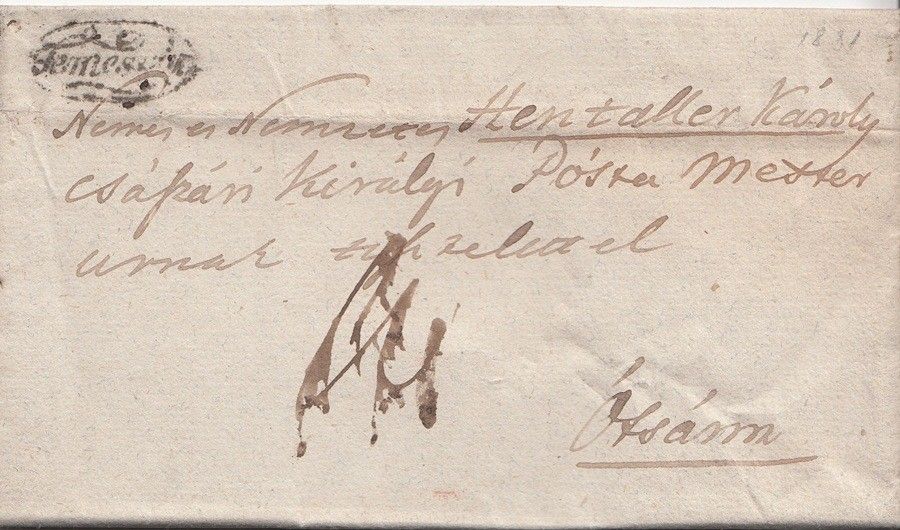 Temesvár
1831
Nemes es Nemzetes Hentaller Károly
császári Királyi Pósta Mester
úrnak tisztelettel
Ótsánn